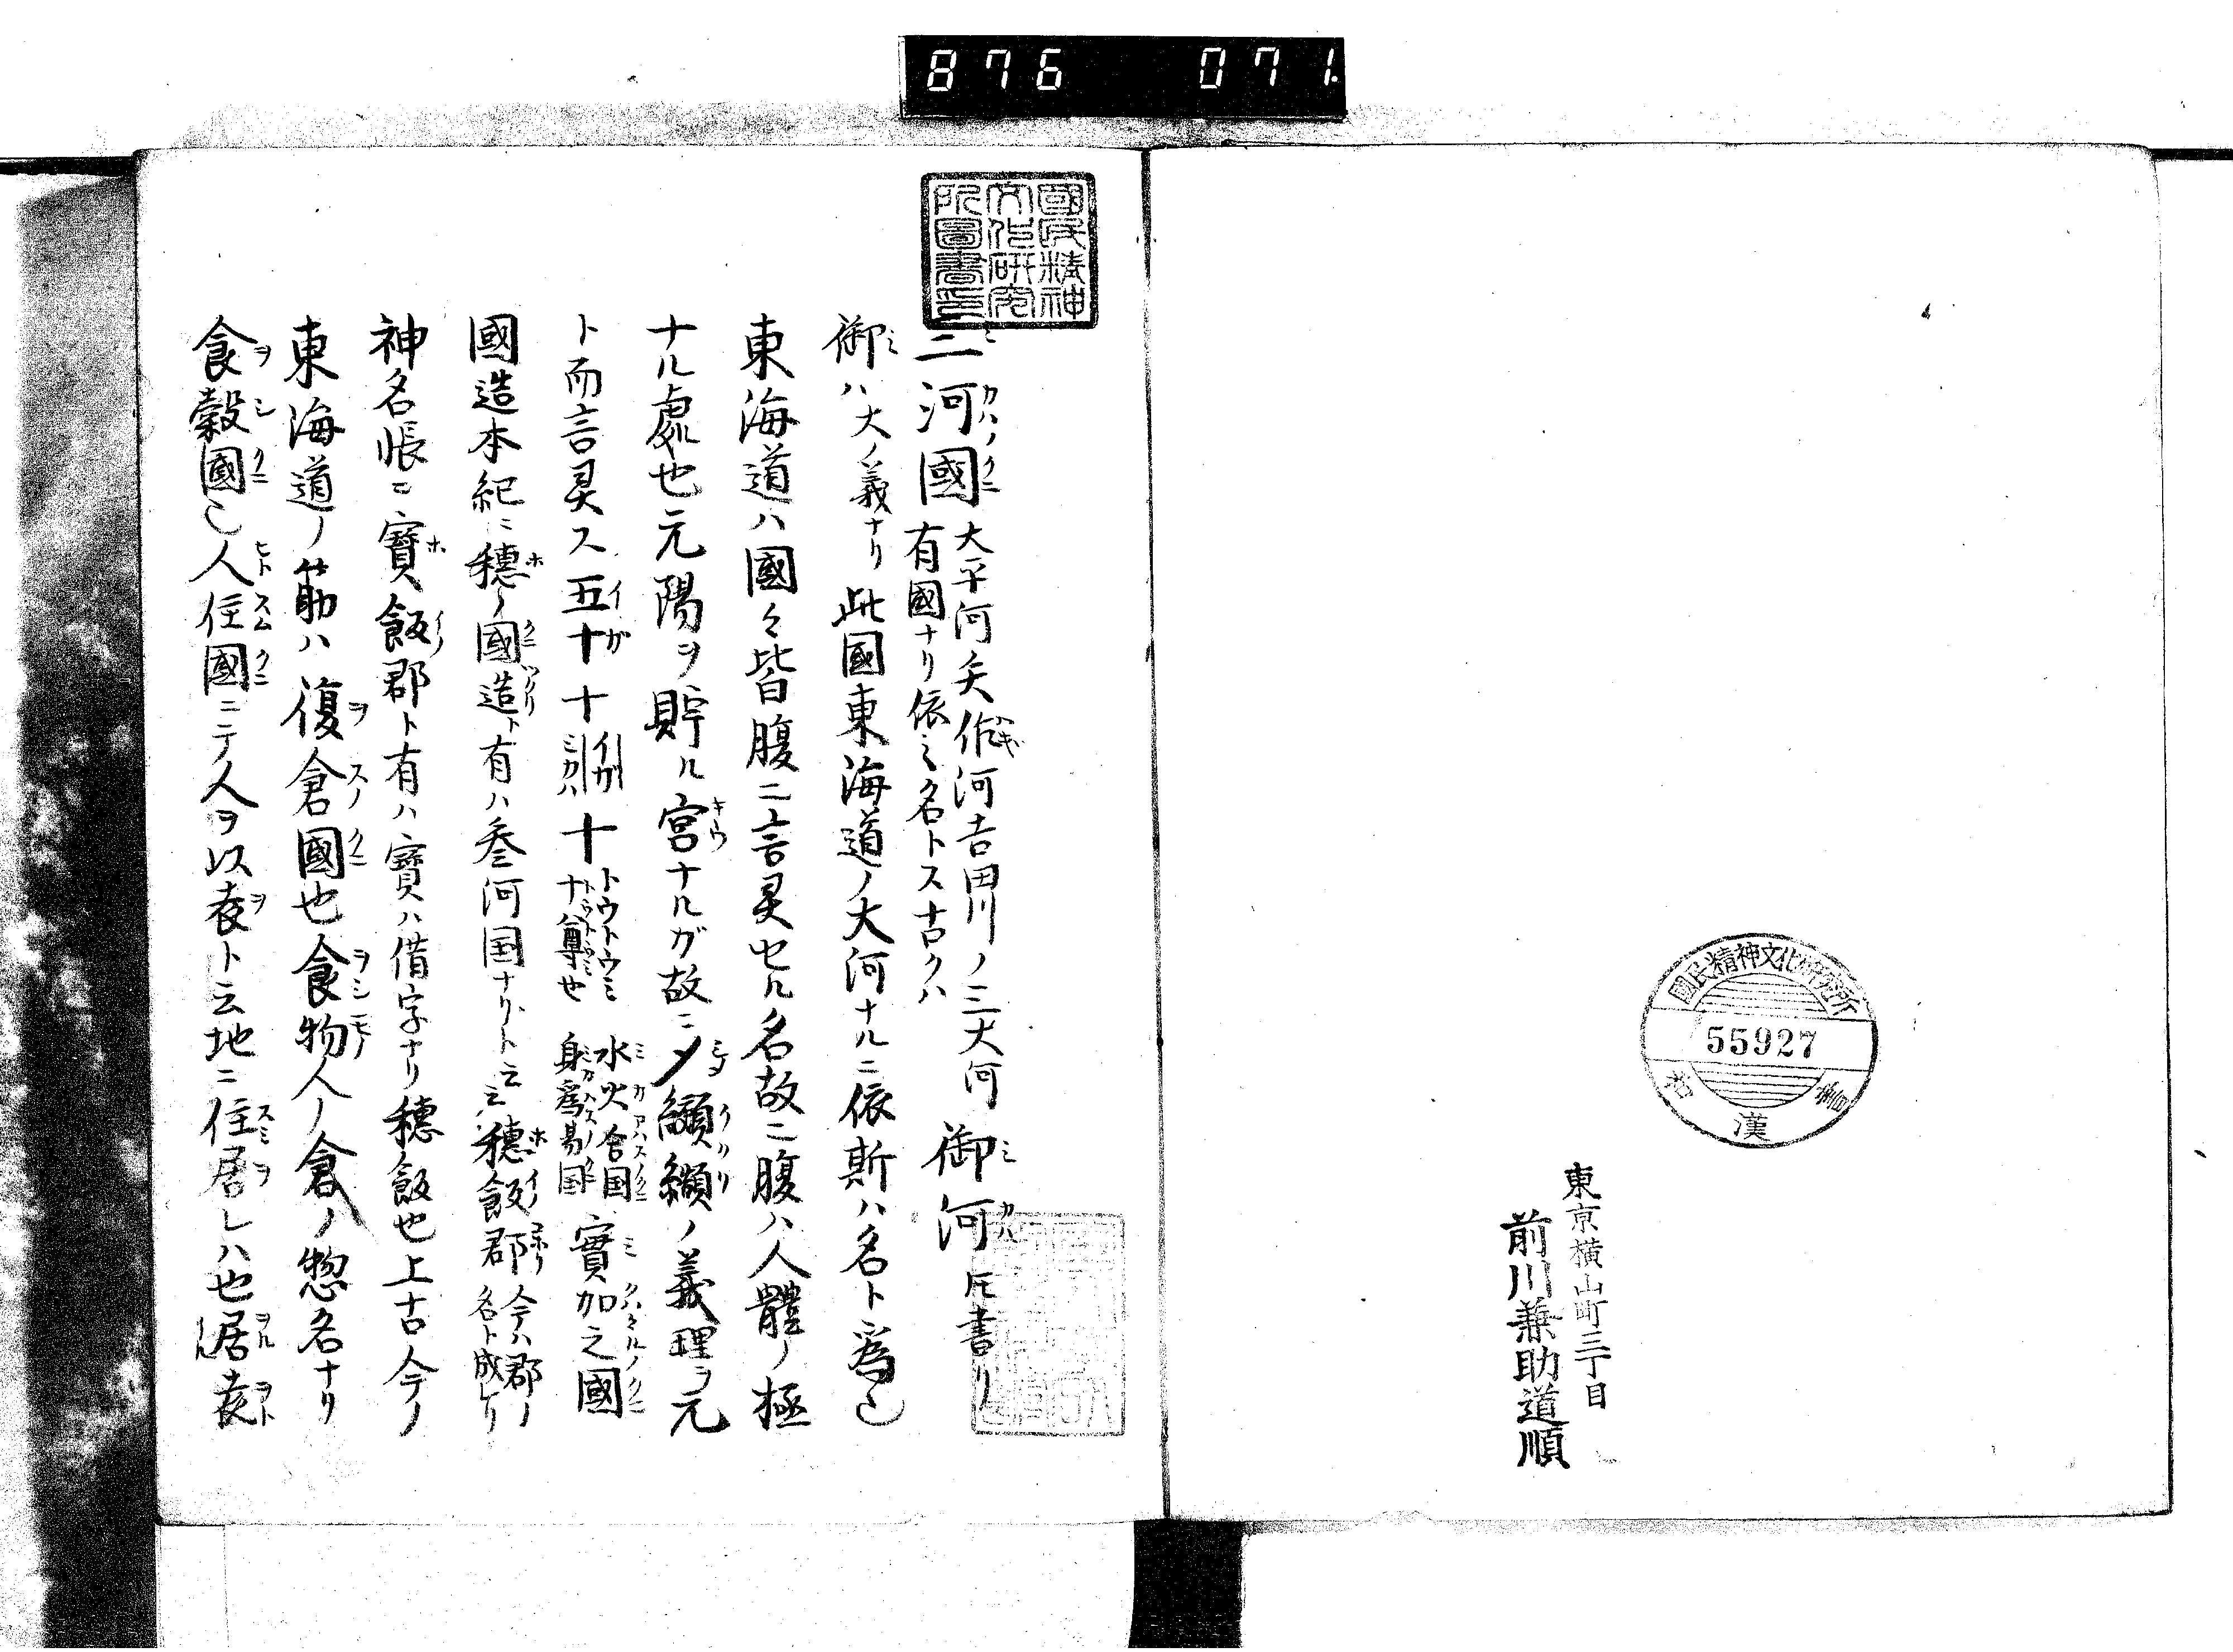 876 071
國民精神文化研究所
55927
和漢書
東京横山町三丁目
前川兼助道順
國民精神
文化研究
所圖書印
三河國 大平河矢作河吉田川ノ三大河
有國ナリ依之名トス古クハ 御河 圧書リ
御ハ大ノ義ナリ 此國東海道ノ大河ナルニ依斯ハ名ト為
東海道ハ國々皆腹ニ言灵セル名故ニ腹ハ人體ノ極
ナル處也元陽ヲ貯ル宮ナルガ故ニ〆纐纐ノ義理ヲ元
ト而言灵ス五十 十 イガ ミカハ 十 トウトウミ 十尊也 水火合国 身為易国 實加之國
國造本紀ニ穂ノ國造ト有ハ叁河国ナリト云 穂飯郡 今ハ郡ノ名ト成リ
神名帳ニ寶飯郡ト有ハ寶ハ借字ナリ穂飯也上古今ノ
東海道ノ筋ハ復倉國也食物人ノ倉ノ惣名ナリ
食穀國 人住國ニテ人ヲ以表ト云地ニ住居レハ也居表